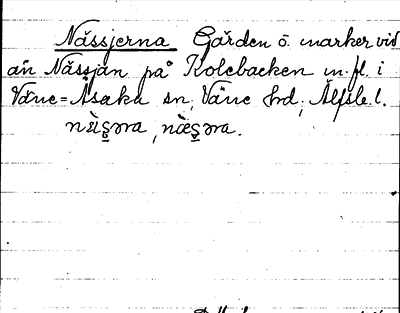 Nässjerna Gården o. marker vid
ån Nässjan på Kolebacken m. fl. i
Väne-Åsaka sn, Väne hrd, Älfsb. l.
nɛ̀ːʂəra, næ̀ʂəra.